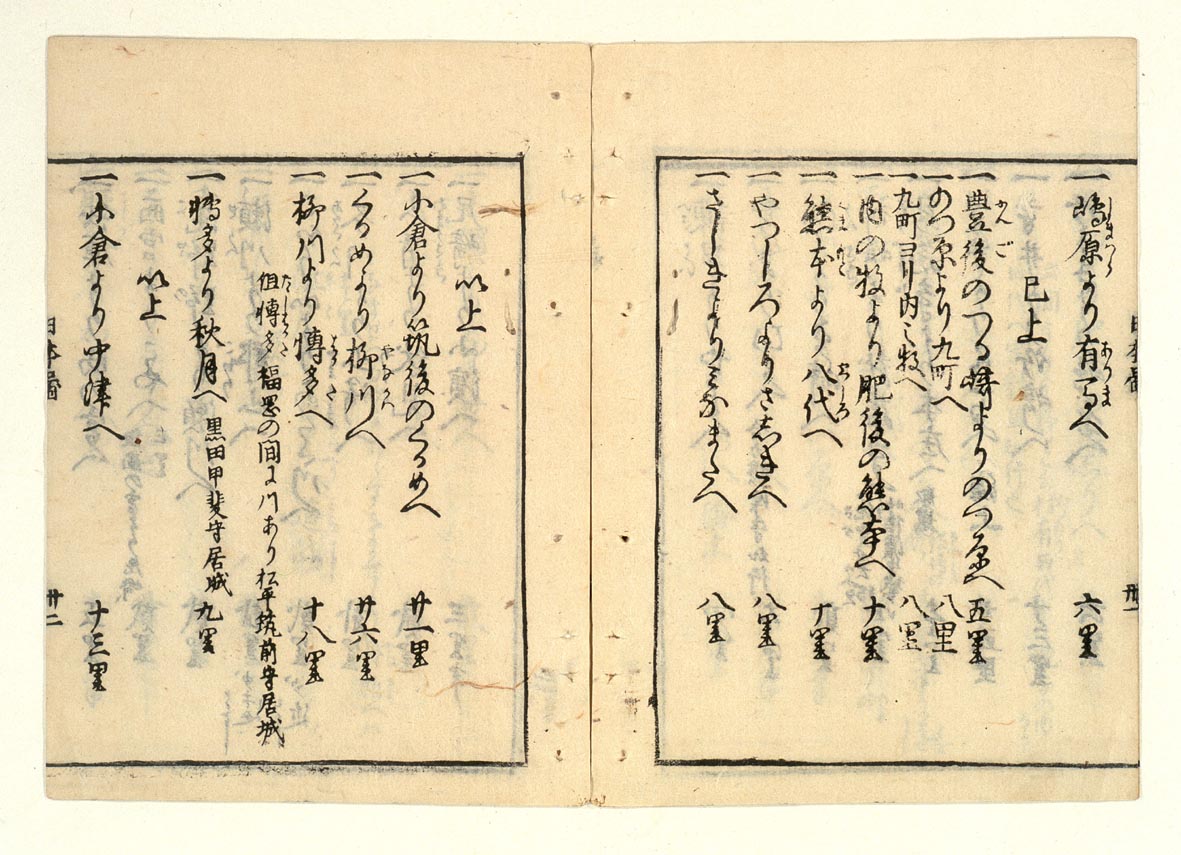 一嶋原より有馬へ 六里
已上
一豊後のつる崎よりのつ原へ 五里
一のつ原より九町へ 八里
一九町ヨリ内ミ牧へ 八里
一内の牧より肥後の熊本へ 十里
一熊本より八代へ 十里
一やつしろよりさしきへ 八里
一さしきよりみなまたへ 八里
日本圖 卅一
以上
一小倉より筑後のくるめへ 廿一里
一くるめより柳川へ 廿六里
一柳川より博多へ 十八里
但博多福岡の間に川あり松平筑前守居城
一博多より秋月へ 黒田甲斐守居城 九里
以上
一小倉より中津へ 十三里
日本圖 卅二